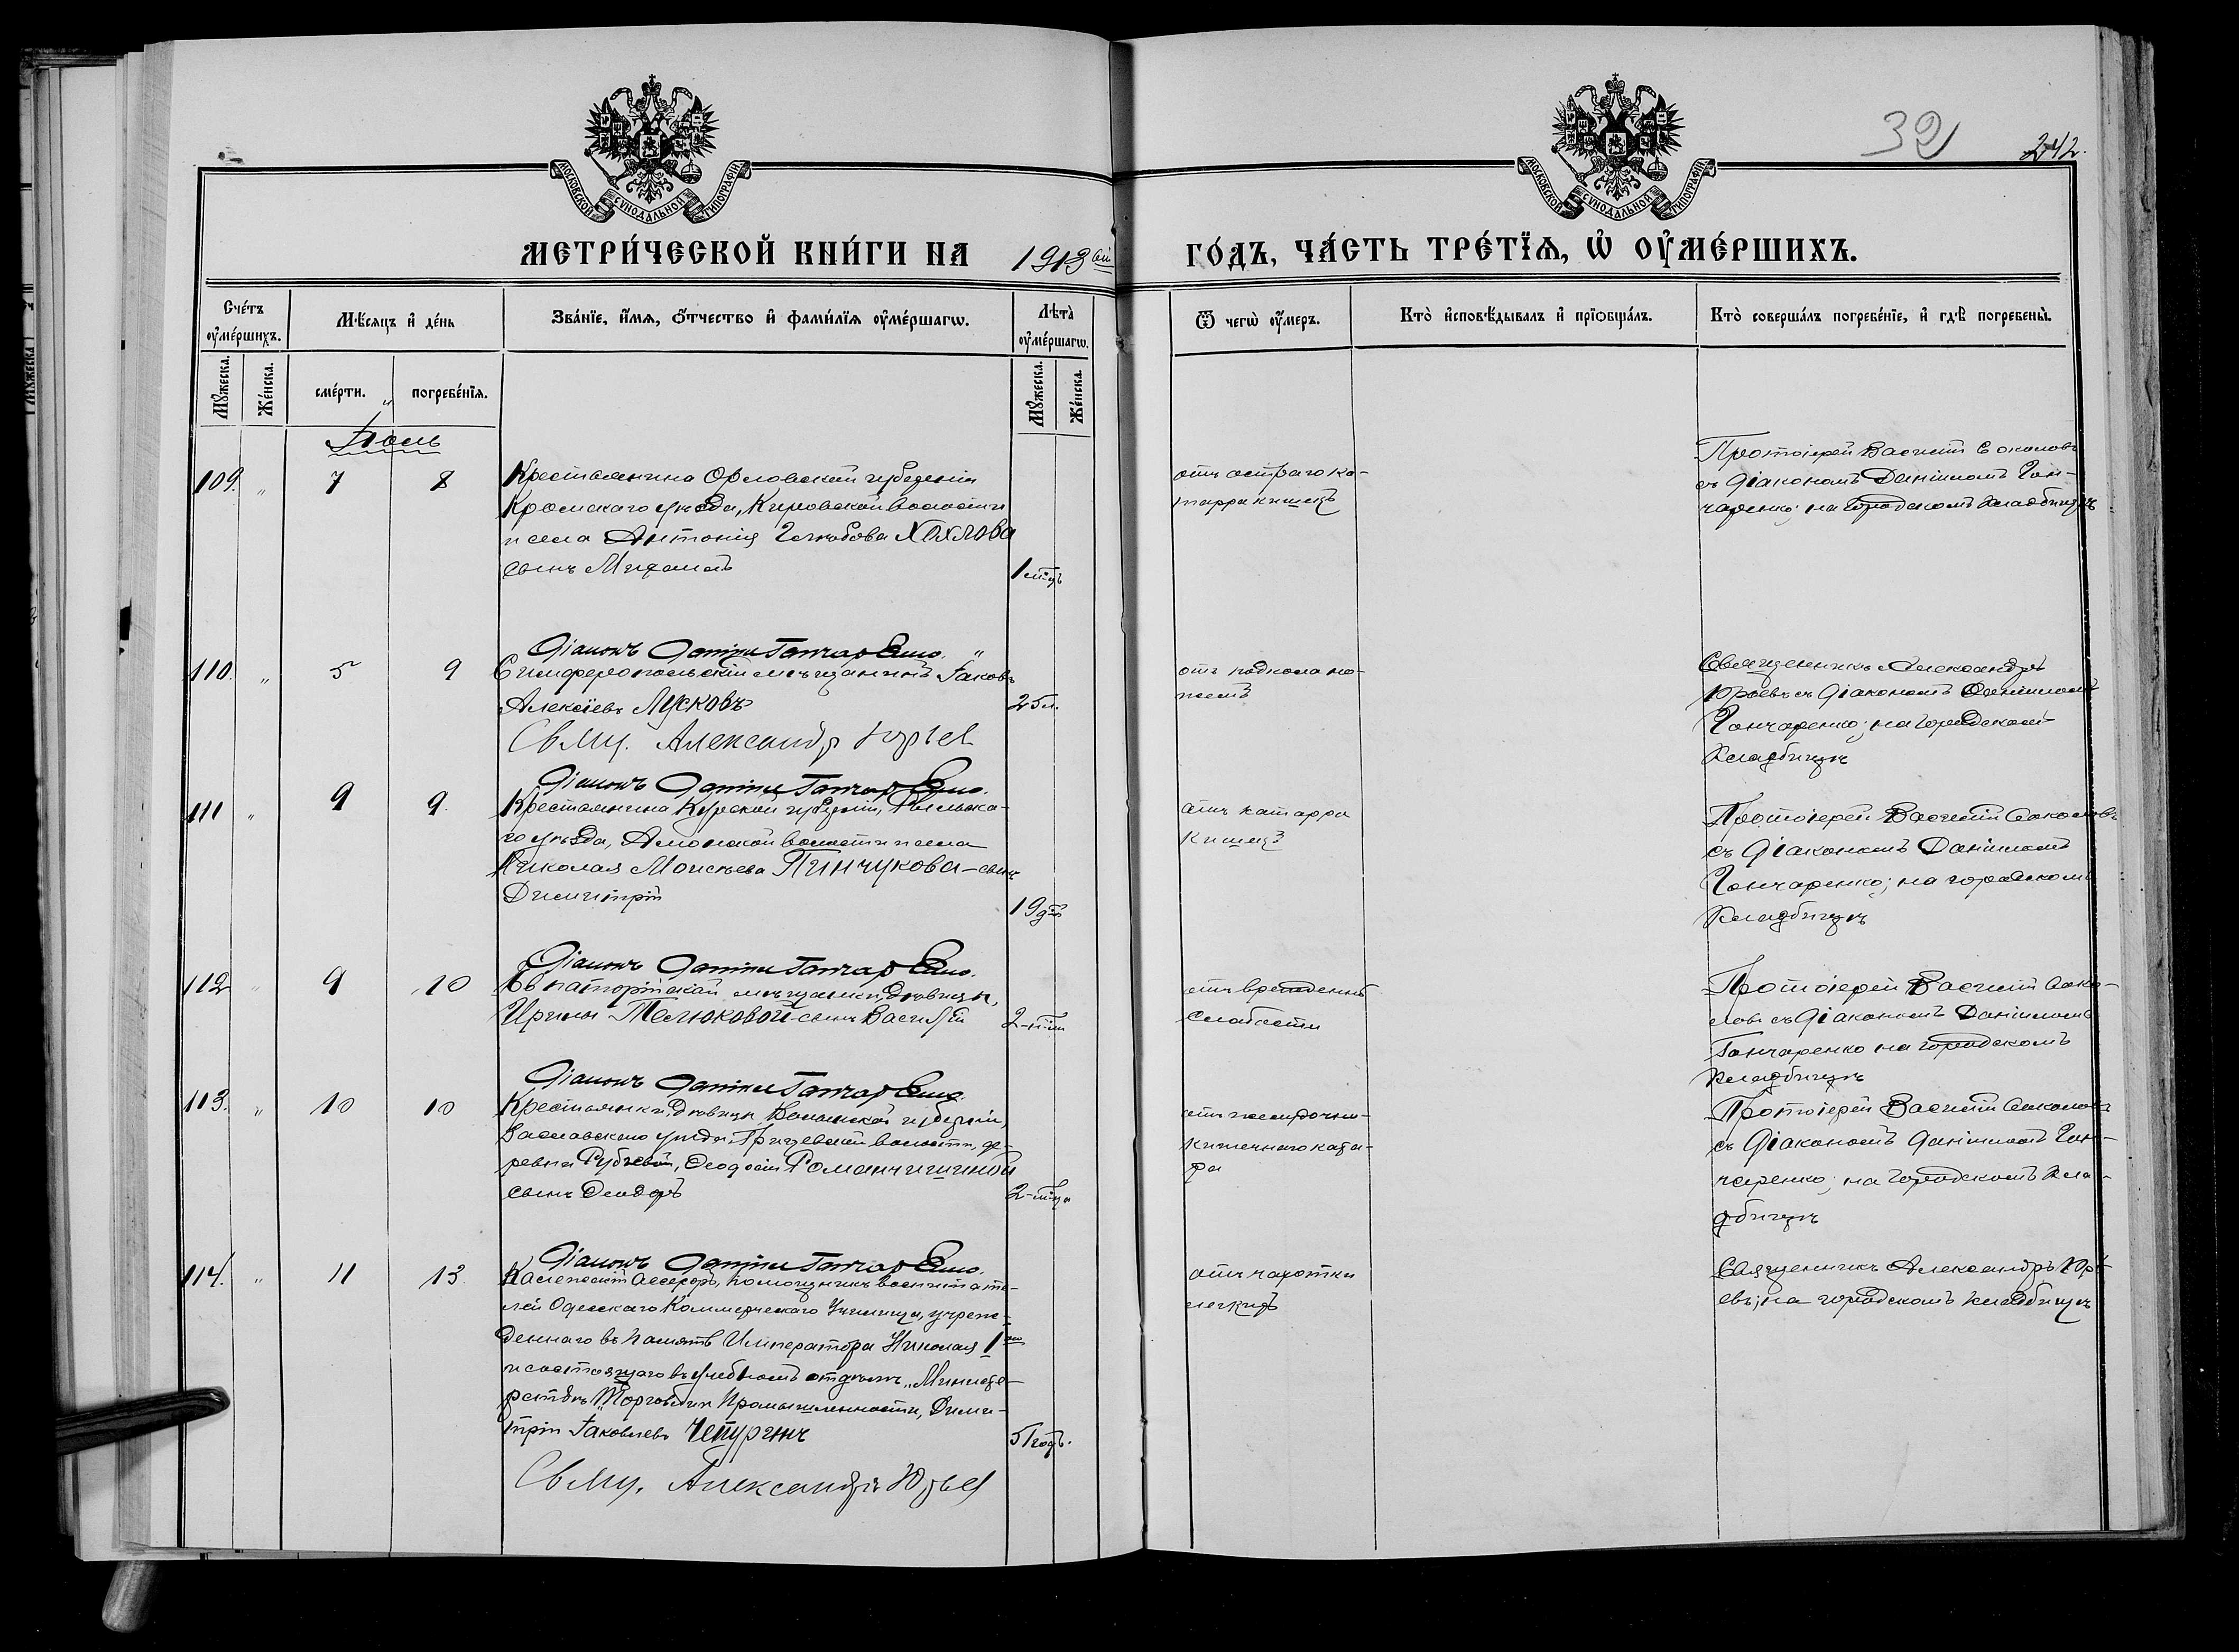 МОСКОВСКОЙ СѴНОДАЛЬНОЙ ТИПОГРАФІИ
МОСКОВСКОЙ СѴНОДАЛЬНОЙ ТИПОГРАФІИ
32
242.
МЕТРИ́ЧЕСКОЙ КНИ́ГИ НА 1913 ГО́ДЪ, ЧА́СТЬ ТРЕ́ТЇѦ, Ѡ҆ ОУ҆МЕ́РШИХЪ.
Сче́тъ оу҆ме́ршихъ.
Мѣ́сяцъ и҆ де́нь
Зва́нїе, и҆́мя, ѻ҆́тчество и҆ фами́лїя оу҆ме́ршагѡ.
Лѣта̀ оу҆ме́ршагѡ.
Ѿ чегѡ̀ оу҆́меръ.
Кто̀ и҆сповѣ́дывалъ и҆ прїѡбща́лъ.
Кто̀ соверша́лъ погребе́нїе, и҆ гдѣ̀ погребены̀.
Мꙋ́жеска.
Же́нска.
сме́рти.
погребе́нїя.
Мꙋ́жеска.
Же́нска.
Іюль
109. " 7 8
Крестьянина Орловской губерніи
Кромскаго уѣзда, Кировской волости
и села Антонія Хохлова
сынъ
1 мѣцъ
отъ остраго ка-
тарра кишекъ
Протоіерей Василій Соколовъ
съ діакономъ Даніиломъ Гон-
чаренко; на городскомъ кладбищѣ
Діаконъ Даніилъ Гончаренко.
110. " 5 9
Симферопольскій мѣщанинъ Іаковъ
Алексіевъ Лусковъ
25 л.
отъ подкола но-
жемъ
Священникъ Александръ
Юрьевъ съ діакономъ Даніиломъ
Гончаренко; на городскомъ
кладбищѣ
Свящ. Александръ Юрьев
Діаконъ Даніилъ Гончаренко.
111 " 9 9.
Крестьянина Курской губерніи, Рыльска-
го уѣзда, Амонской волости и села
Николая Моисѣева Пинчукова - сынъ
Димитрій
19 дн
отъ катарра
кишекъ
Протоіерей Василій Соколовъ
съ діакономъ Даніиломъ
Гончаренко; на городскомъ
кладбищѣ
Діаконъ Даніилъ Гончаренко.
112 " 9 10
Евпаторійской мѣщанки, дѣвицы,
Ирины Телюковой - сынъ Василій
отъ врожденной
слабости
Протоіерей Василій Соко-
ловъ съ діакономъ Даніиломъ
Гончаренко на городскомъ
кладбищѣ
Діаконъ Даніилъ Гончаренко.
113. " 10 10
Крестьянки, дѣвицы Волынской губерніи,
Заславскаго уѣзда, Грицевской волости, де-
ревни Ѳеодосіи Романчишиной
сынъ Ѳеодоръ
2-мѣца
отъ желудочно-
кишечнаго ката-
ра
Протоіерей Василій Соколовъ
съ діакономъ Даніиломъ Гон-
чаренко; на городскомъ кла-
дбищѣ
Діаконъ Даніилъ Гончаренко.
114. " 11 13.
Коллежскій Ассесоръ, помощникъ воспитате-
лей Одесскаго Коммерческаго Училища, учреж-
деннаго въ память Императора Николая 1го
и состоящаго въ учебномъ отдѣлѣ "Министе-
рствѣ" Торговли и Промышленности, Дими-
трій Іаковлевъ Чепургинъ
51 годъ.
отъ чахотки
легкихъ
Священникъ Александръ Юрь-
евъ; на городскомъ кладбищѣ
Свящ. Александръ Юрьев